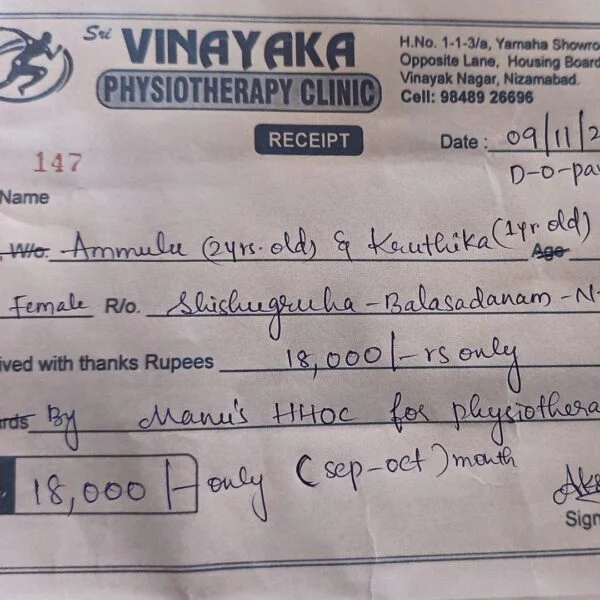 Sri VINAYAKA
PHYSIOTHERAPY CLINIC
H.No. 1-1-3/a, Yamaha Showro
Opposite Lane, Housing Board
Vinayak Nagar, Nizamabad.
Cell: 98489 26696
RECEIPT
Date : 09/11/2
147
D-o-pa
Name
W/o. Ammulu (2yrs. old) & Kruthika (1yr old) Age
Female R/o. Shishugruha - Balasadanam - N
ived with thanks Rupees 18,000/- rs only
rds By Manu's HHOC for physiothera
18,000/- only (sep-oct) month
Sign